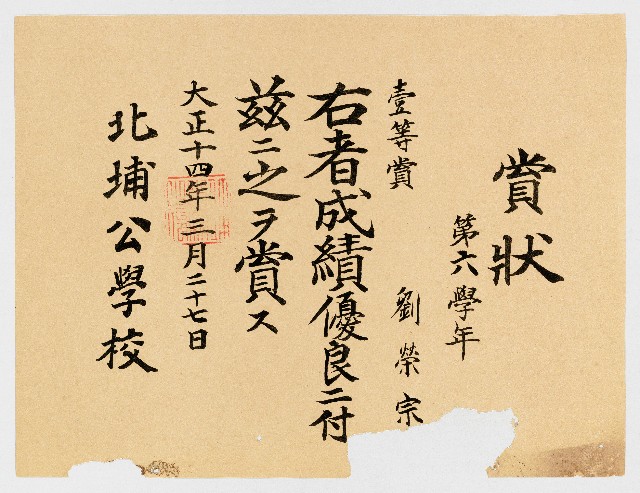 賞狀
第六學年
壹等賞 劉榮宗
右者成績優良ニ付
茲ニ之ヲ賞ス
大正十四年三月二十七日
北埔公學校